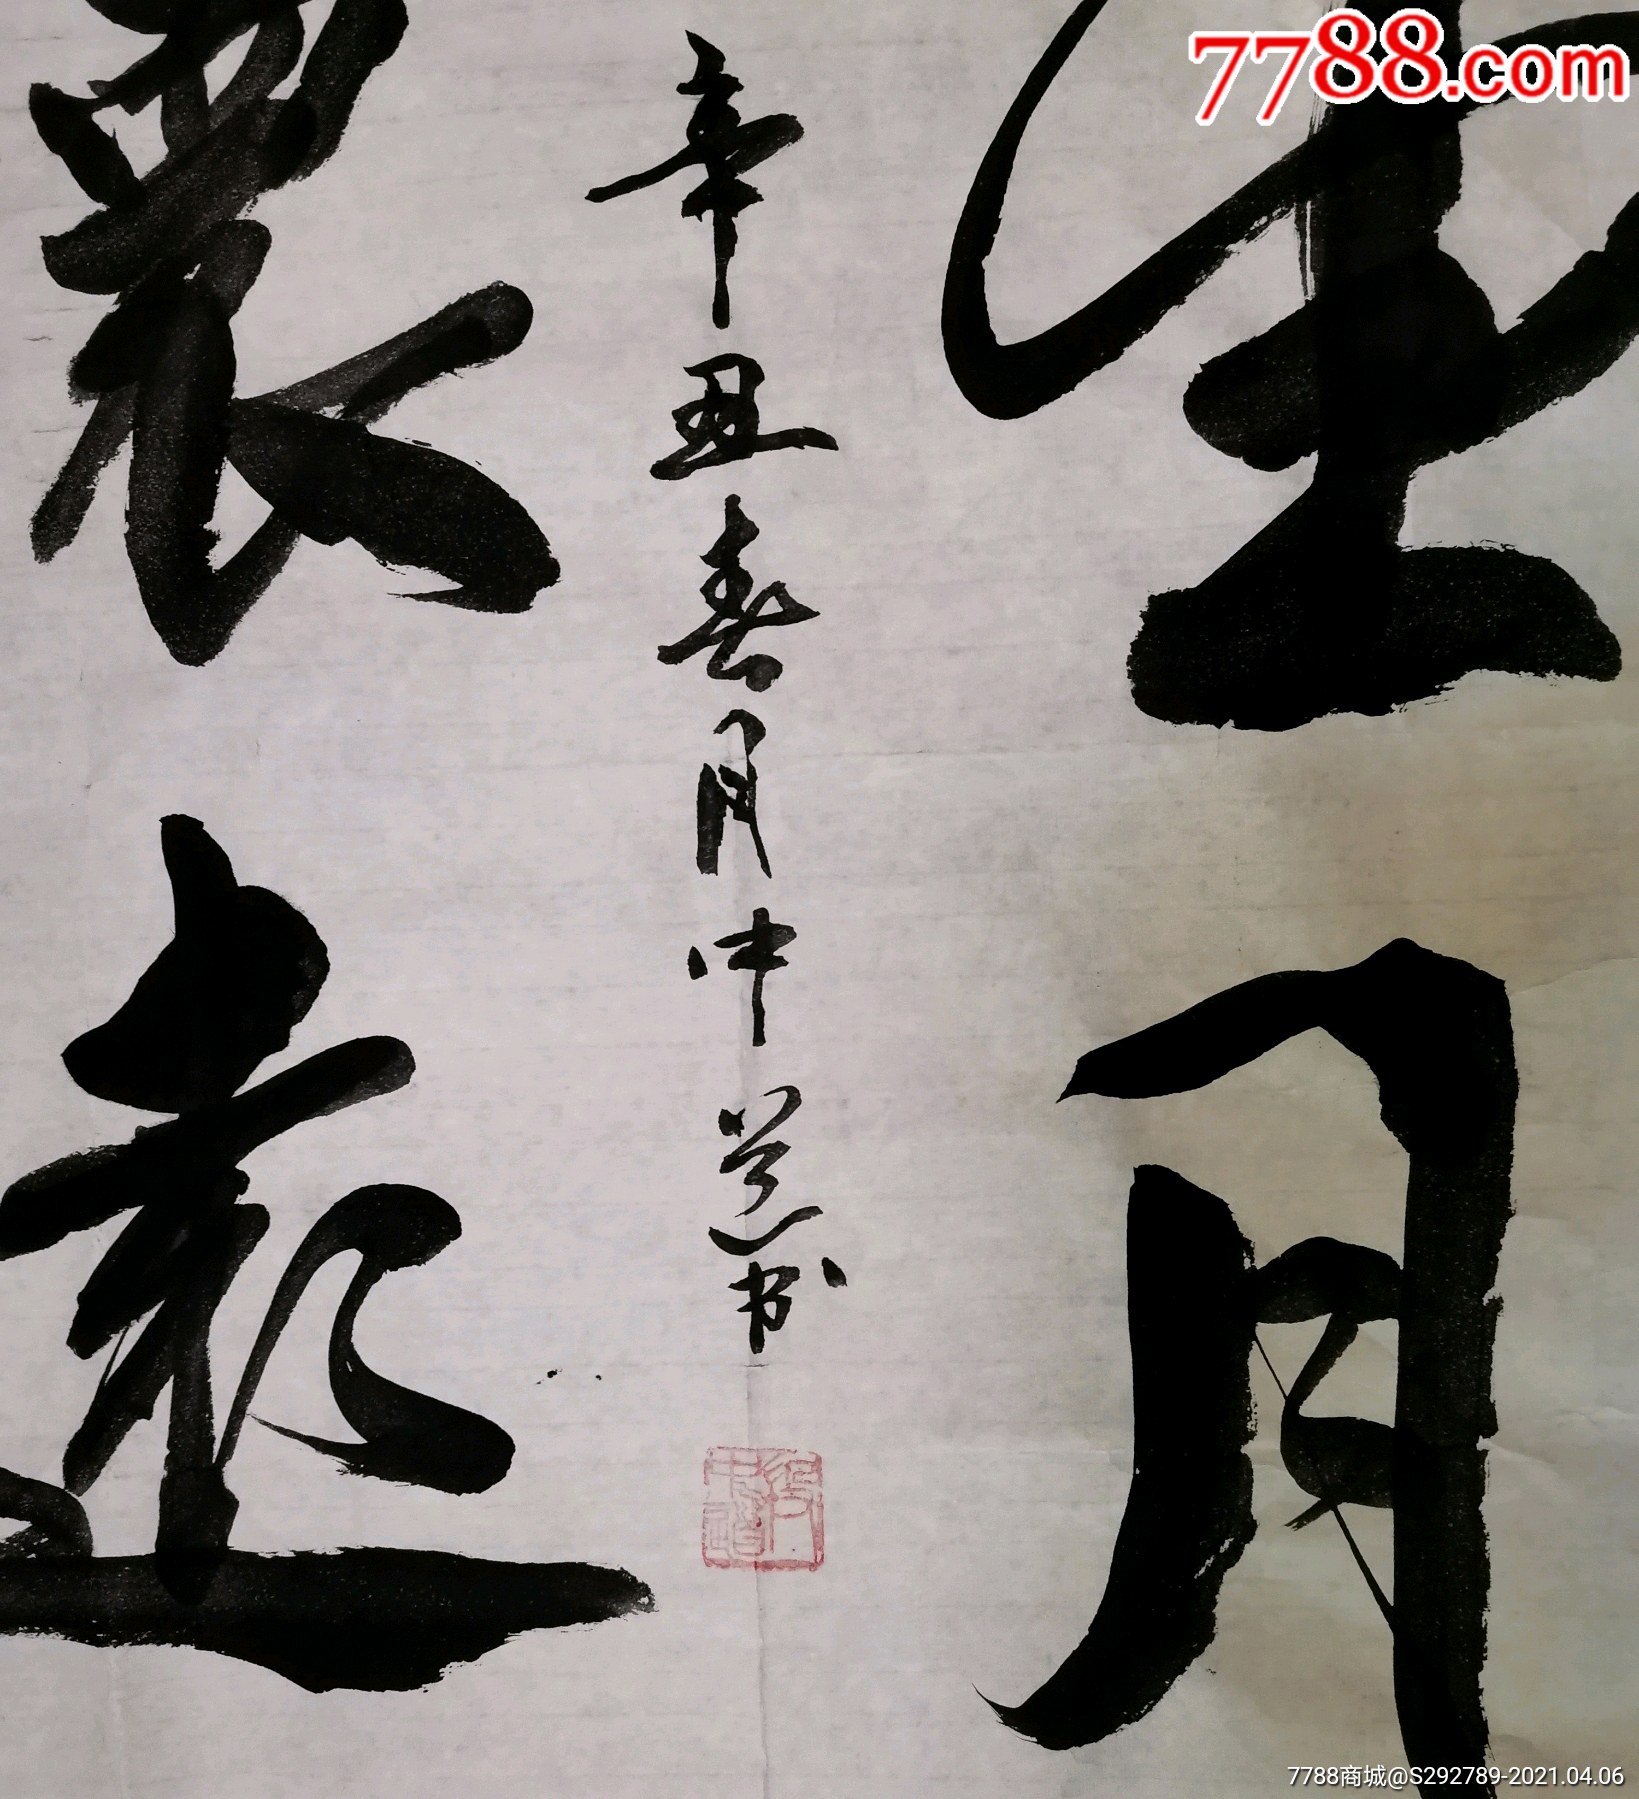 7788.com
生月
辛丑春月中道书
遠
7788商城@S292789-2021.04.06